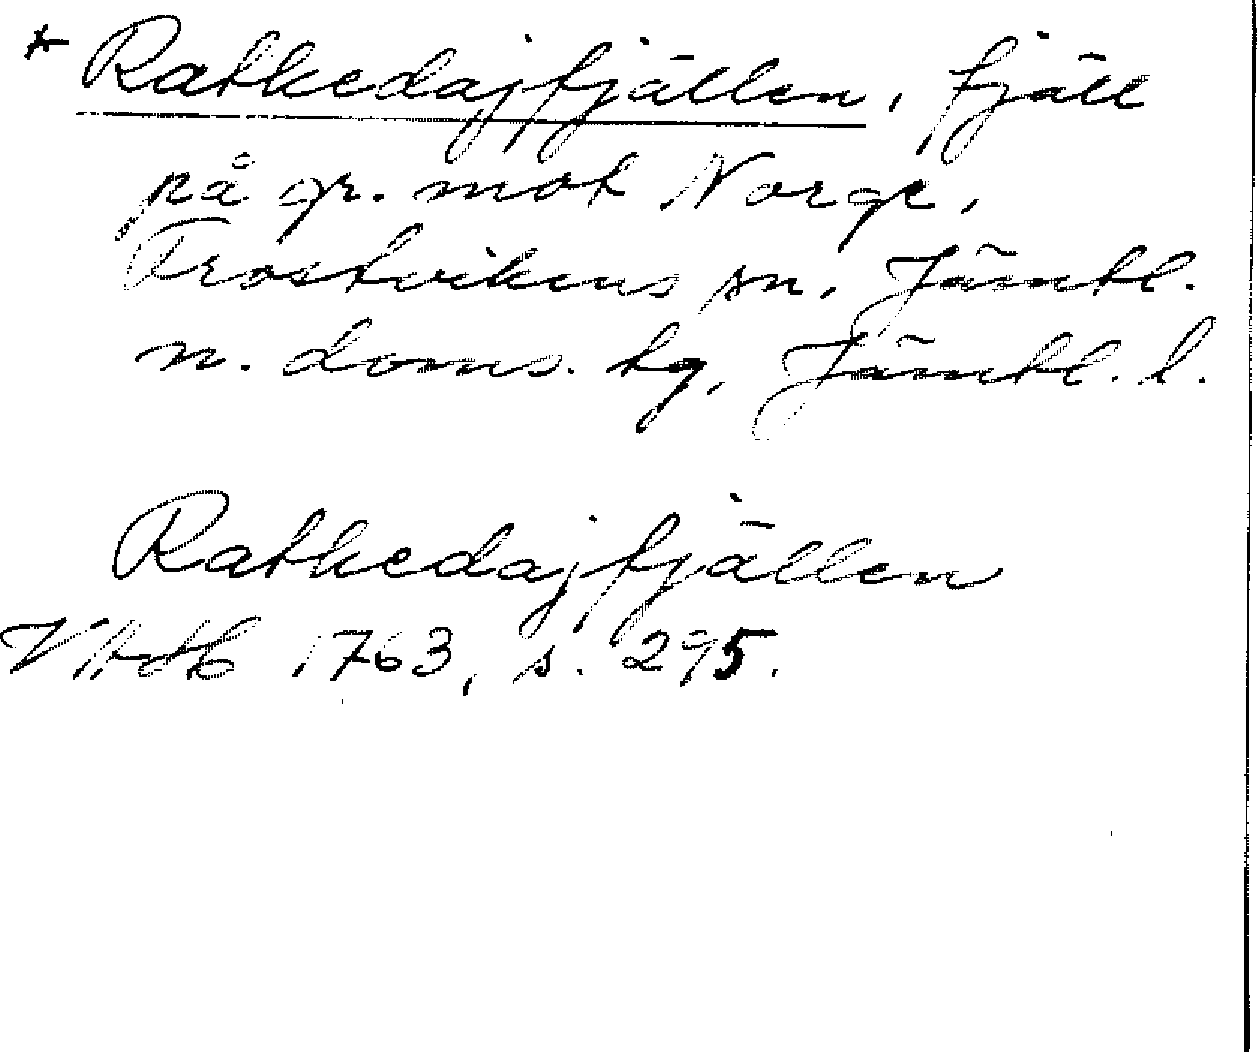 * Rathedajfjällen, fjäll
på gr. mot Norge,
Frostvikens sn, Jämtl.
n. doms. tg, Jämtl. l.
Rathedajfjällen
1763, s. 295.